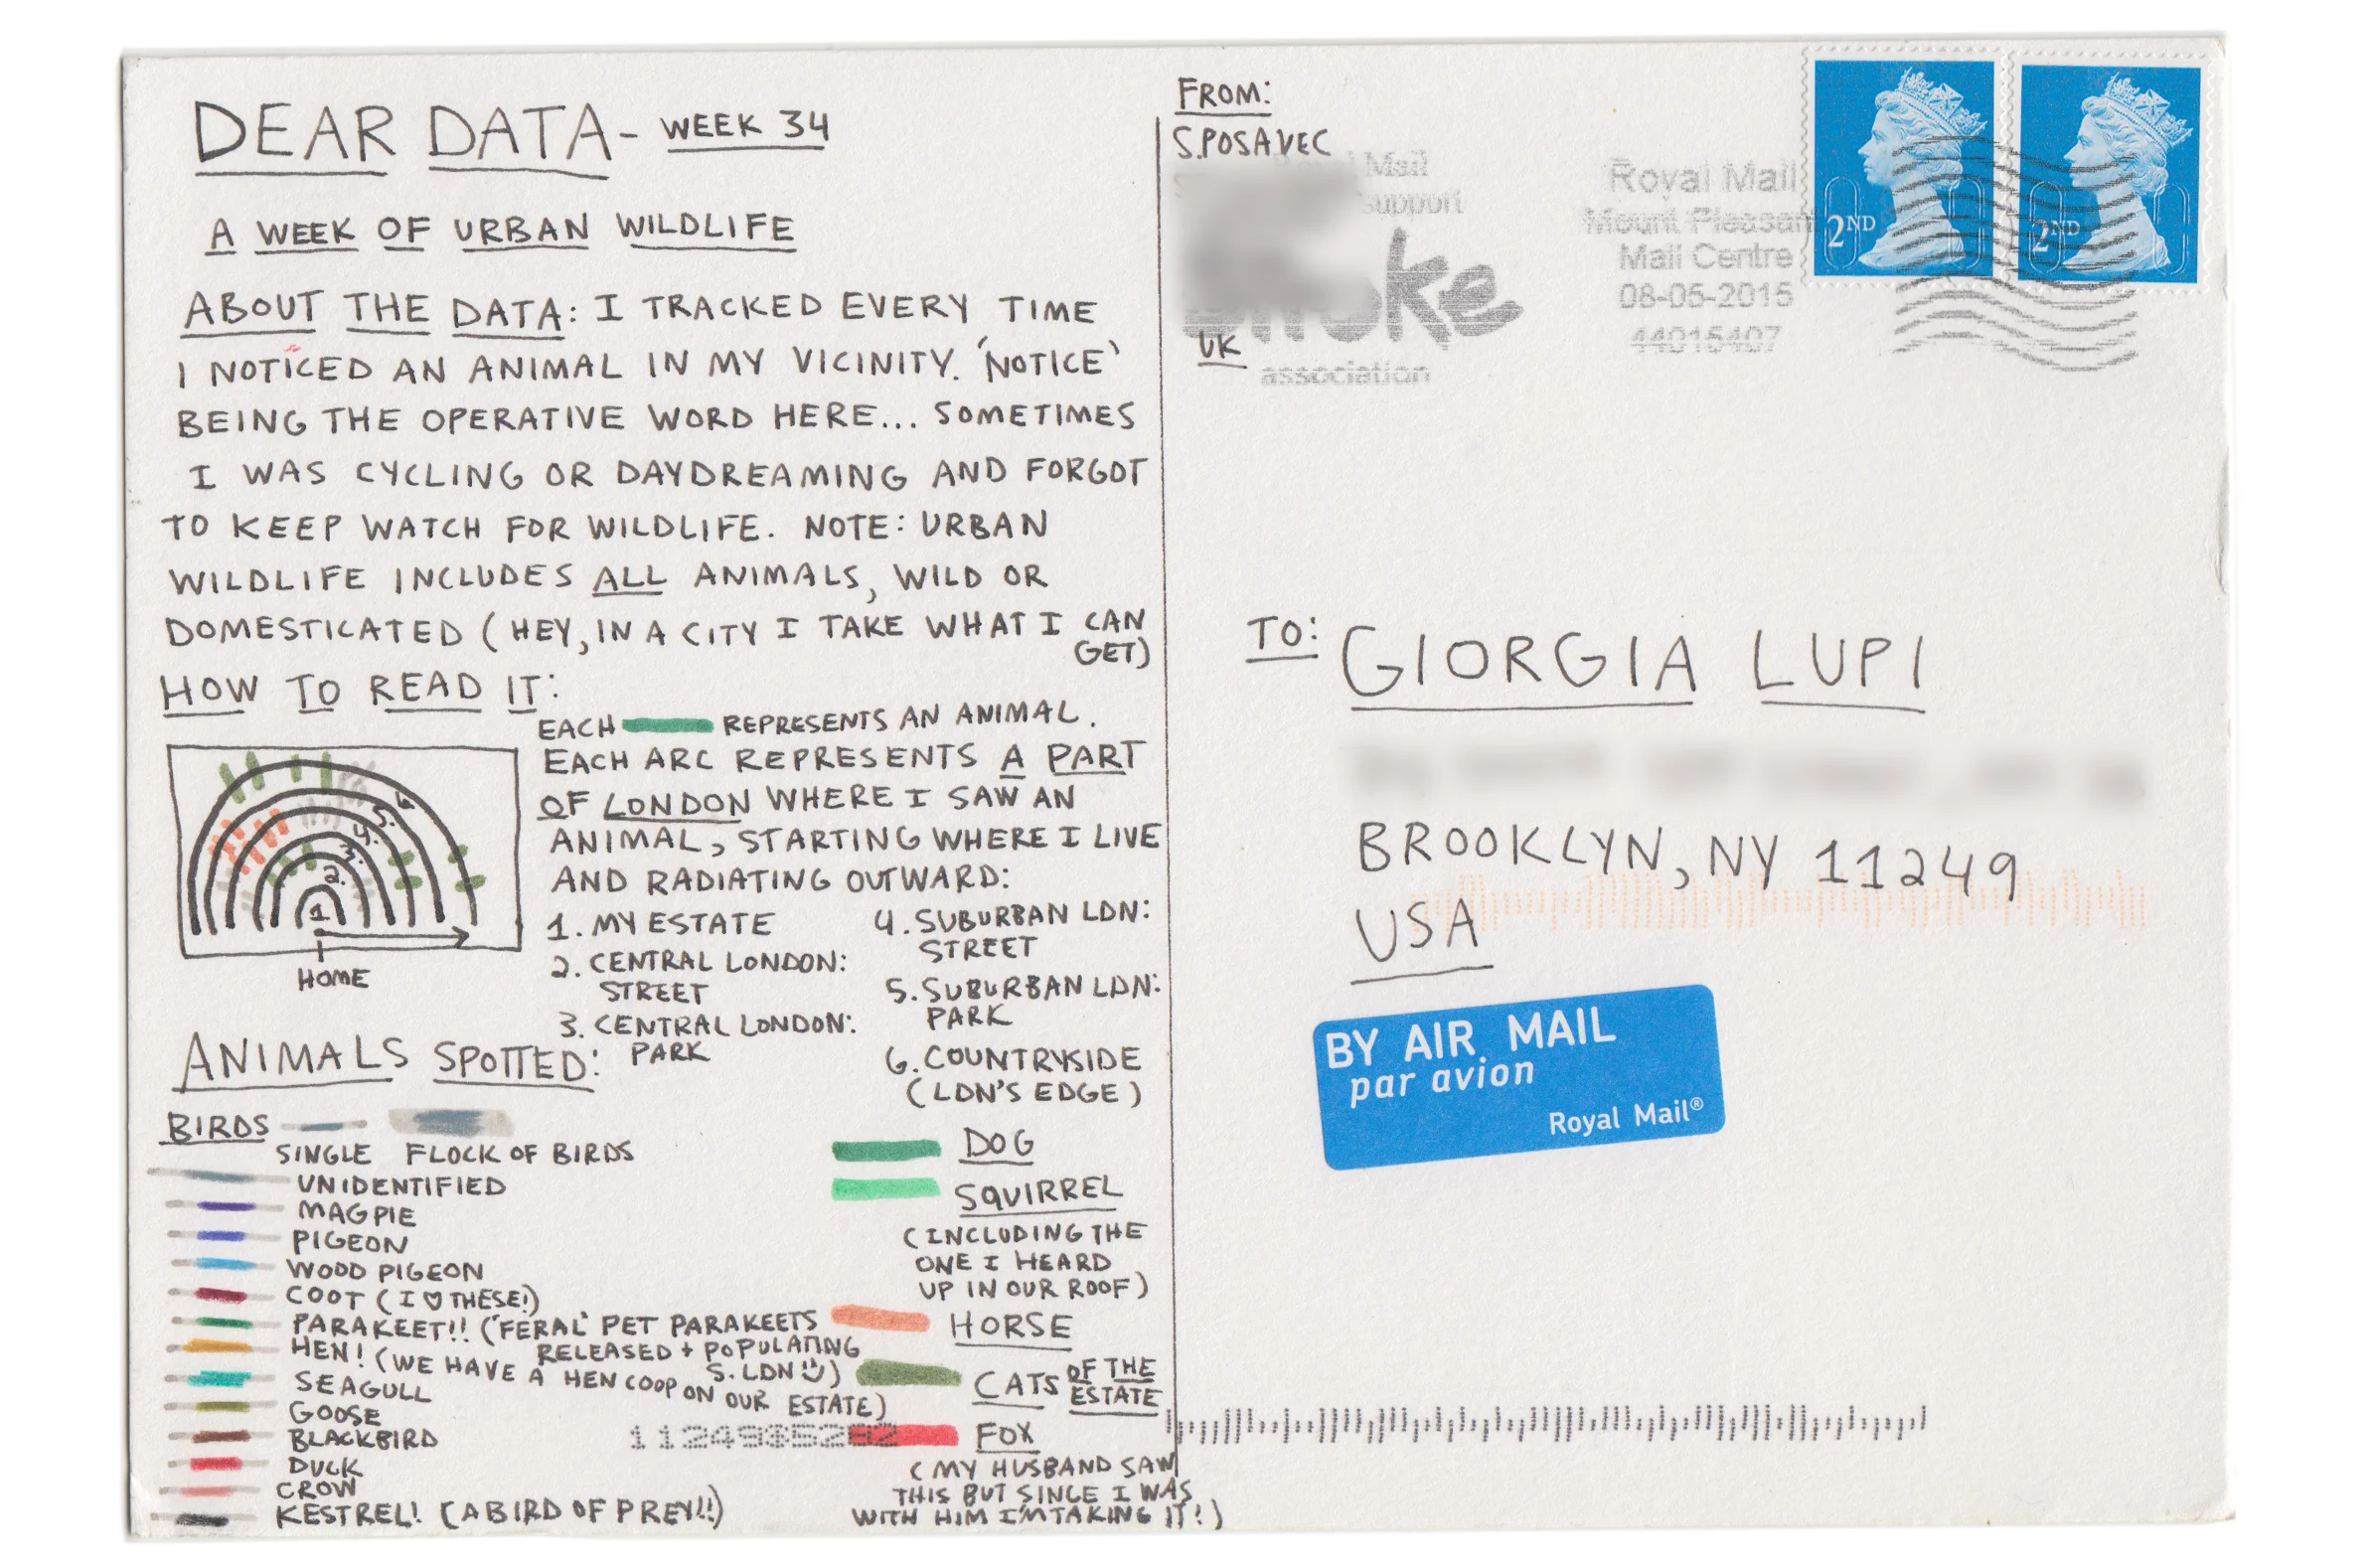 DEAR DATA - WEEK 34
A WEEK OF URBAN WILDLIFE
ABOUT THE DATA: I TRACKED EVERY TIME
I NOTICED AN ANIMAL IN MY VICINITY. 'NOTICE'
BEING THE OPERATIVE WORD HERE... SOMETIMES
I WAS CYCLING OR DAYDREAMING AND FORGOT
TO KEEP WATCH FOR WILDLIFE. NOTE: URBAN
WILDLIFE INCLUDES ALL ANIMALS, WILD OR
DOMESTICATED (HEY, IN A CITY I TAKE WHAT I CAN
GET)
HOW TO READ IT:
EACH REPRESENTS AN ANIMAL.
EACH ARC REPRESENTS A PART
OF LONDON WHERE I SAW AN
ANIMAL, STARTING WHERE I LIVE
AND RADIATING OUTWARD:
1. MY ESTATE
2. CENTRAL LONDON:
STREET
3. CENTRAL LONDON:
PARK
4. SUBURBAN LDN:
STREET
5. SUBURBAN LDN:
PARK
6. COUNTRYSIDE
(LDN'S EDGE)
1.
2.
3.
4.
5.
6
HOME
ANIMALS SPOTTED:
BIRDS
SINGLE FLOCK OF BIRDS
UNIDENTIFIED
MAGPIE
PIGEON
WOOD PIGEON
COOT (I ♡ THESE!)
PARAKEET!! ('FERAL' PET PARAKEETS
RELEASED + POPULATING
S. LDN ☺)
HEN! (WE HAVE A HEN COOP ON OUR ESTATE)
SEAGULL
GOOSE
BLACKBIRD
DUCK
CROW
KESTREL! (A BIRD OF PREY!!)
DOG
SQUIRREL
(INCLUDING THE
ONE I HEARD
UP IN OUR ROOF)
HORSE
CATS OF THE
ESTATE
FOX
(MY HUSBAND SAW
THIS BUT SINCE I WAS
WITH HIM I'M TAKING IT!)
FROM:
S. POSAVEC
UK
Mail
support
association
Royal Mail
Mount Pleasant
Mail Centre
08-05-2015
44015407
2ND
2ND
TO: GIORGIA LUPI
BROOKLYN, NY 11249
USA
BY AIR MAIL
par avion
Royal Mail®